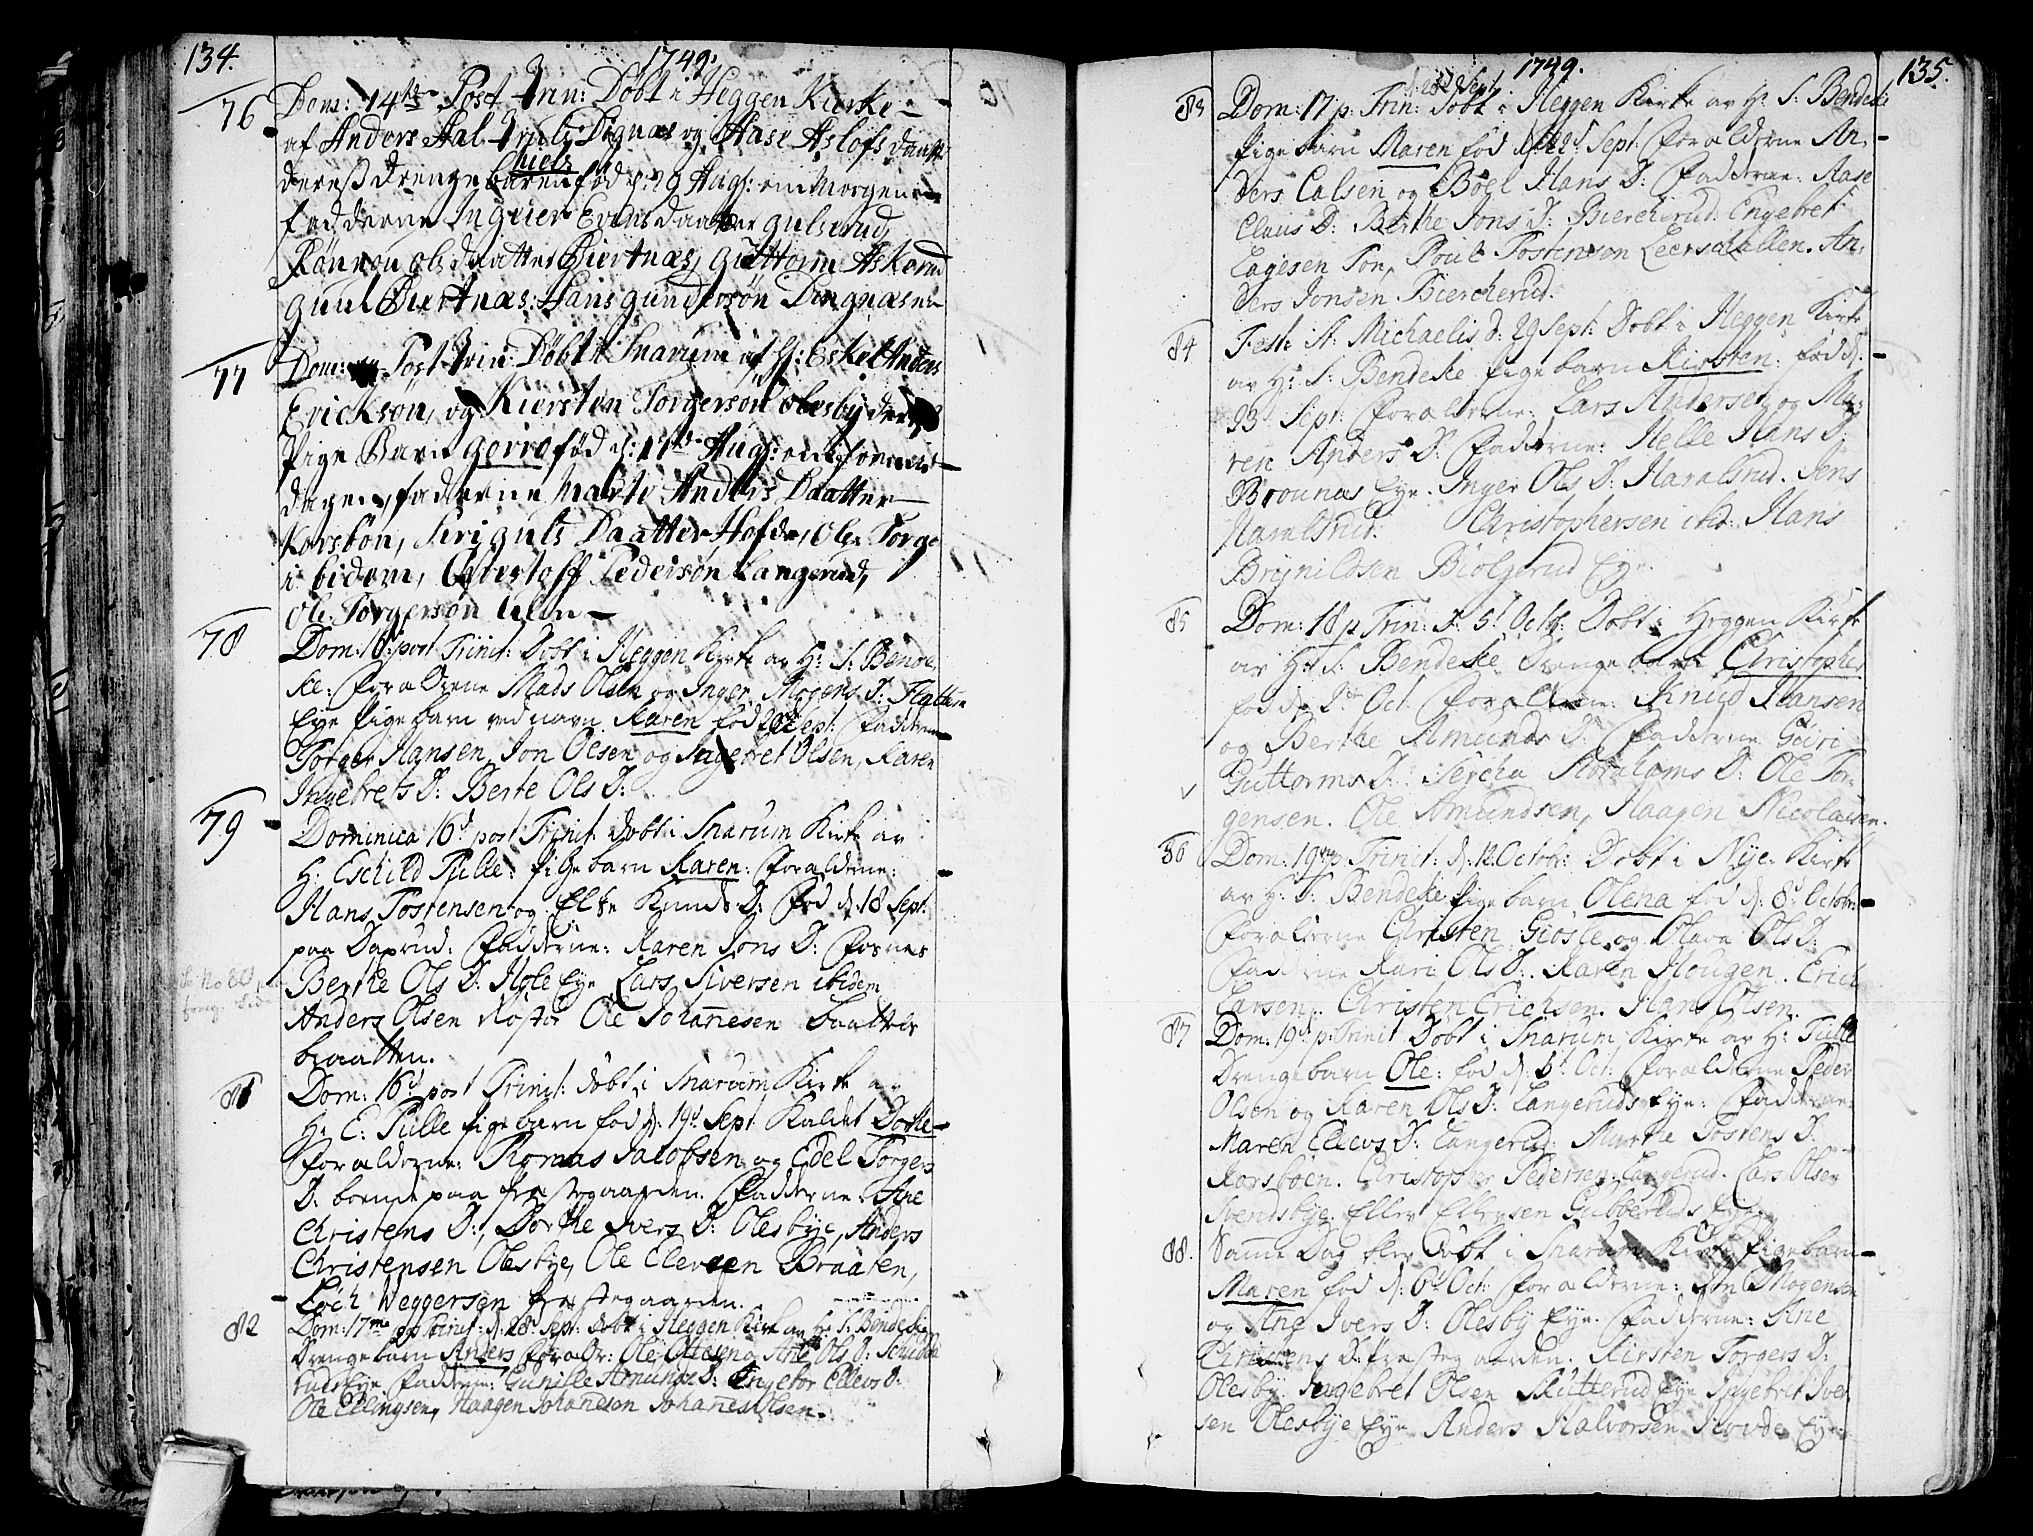 134.
1749.
76 Dom: 14de Post Trin: Döbt i Heggen Kierke
af Anders Aal Dignæs og Aase Aslofs daatt
deress drenge baren Niels föd d: 9 Aug: om Morgenen
fadderne Ingeier Evens daatter gulsrud
Rönnou ols daatter Biertnæs, Guttorm Askerud
guul Biertnæs: Hans gundersön Dingnæs
77 Dom: Post Trin: Döbt i Snarum af H: Eskel Anders
Erickson, og Kiersten Torgersön olesby deres
Pige Barn gorro föd d: 17de Aug: om
dagen, faderne Marte Anders Daatter
Korsbön, Siri guls Daatter Hofde, Ole Torge
ibidem, Christoff Pedersön Langerud,
Ole Torgerson
78 Dom: 16d post Trinit: Döbt i Heggen Kirke av H: S: Bende
ke: Forældrene Mads Olsen og Inger Mogens D: Flattum
Eye Pige barn ved navn Karen föd Sept: Fadderne
Torger Hansen, Jon Olsen og Ingebret Olsen, Karen
Ingebrets D: Berte Ols D:
79 Dominica 16d post Trinit: döbt i Snarum Kirke av
H: Eschild Tulle: Pige barn Karen: Forælderne:
Hans Tostensen og Else Knuds D: Föd d: 18 Sept:
paa Daprud: Fadderne: Karen Jons D: Fosnes
Berthe Ols D: Hole Eye Lars Siversen ibidem
Anders Olsen Kloster Ole Johannesen
braatten.
81 Dom: 16d post Trinit: döbt i Snarum Kirke av
H: E: Tulle Pige barn föd d: 19d Sept Kaldet Dorthe
Forælderne: Thomas Jacobsen og Edel Torgers
D: boende paa Præstegaarden. Fadderne: Ane
Christens D:, Dorthe Ivers D: Olesbye, Anders
Christensen Olesbye, Ole Elevsen Braaten,
Erich Weggersen Præstegaarden.
82 Dom: 17me p Trinit: d: 28 Sept: Döbt i Heggen Kirke av H: S: Bendeke
Drenge barn Anders Forældr: Ole Ottesen og Ane Ols D:
ruds Eye Fadderne: Gunille Amunds D: Engebor Ellevs D:
Ole Ellingsen, Haagen Johannesen Johannes Olsen.
135.
1749.
d: 28 Sept.
83 Dom: 17 p: Trin: Döbt i Heggen Kirke av H: S: Bendeke
Pige barn Maren föd d: 22d Sept: Forælderne An-
ders Calsen og Böel Hans D: Fadderne: Aase
Claus D: Berthe Jons D: Biercherud. Engebret
Eagesen Ton, Poul Tostensen Leersdallen. An-
ders Jonsen Biercherud.
84 Fest: St: Michaelis d: 29 Sept: Döbt i Heggen Kirke
av H: S: Bendeke Pige barn Kirsten: föd d:
23 Sept: Forælderne: Lars Andersen og Ma-
ren Anders D: Fadderne: Helle Hans D:
Brounæs Eye. Inger Ols D: Haralsrud. Jens
Haralsrud. Christophersen ibd: Hans
Brynildsen Biölgerud Eye.
85 Dom: 18 p Trin: d: 5t Octb: Döbt i Heggen Kirke
av H: S: Bendeke Drenge barn Christopher
föd d: 2den Oct Forælderne: Knud Hansen
og Berthe Amunds D: Fadderne Gúri
Guttorms D: Sercha Abrahams D: Ole Tor-
gensen. Ole Amundsen, Haagen Nicolaisen.
86 Dom: 19de p Trinit: d: 12 Octobr: Döbt i Nye Kirke
av H: S: Bendeke Pige barn Olena föd d: 8d Octobr:
Forælderne Christen Giosle og Olava Ols D:
Fadderne Kari Ols D: Karen Hougen. Erich
Larsen. Christen Erichsen. Hans Olsen.
87 Dom: 19d p: Trinit Döbt i Snarum Kirke av H: Tulle
Drenge barn Ole: föd d: 5t Oct: Forælderne Peder
Olsen og Karen Ols D: Langeruds Eye: Fadderne:
Maren Ellevs D: Langerud: Marthe Tostens D:
Korsböen. Christopher Pedersen: Langerud. Lars Olsen
Svendsbye. Ellev Ellevsen Gubberuds Eye.
88. Samme Dag blev Döbt i Snarum Kirke Pige barn
Maren föd d: 6d Oct: Forælderne: Jon Mogensen
og Ane Ivers D: Olesby Eye. Fadderne: Ane
Christens D: Præstegaarden. Kirsten Torgers D:
Olesby. Ingebret Olsen Skutterud Eye Ingebret Iver
sen Olesbye Eye Anders Halvorsen Hovde Eye